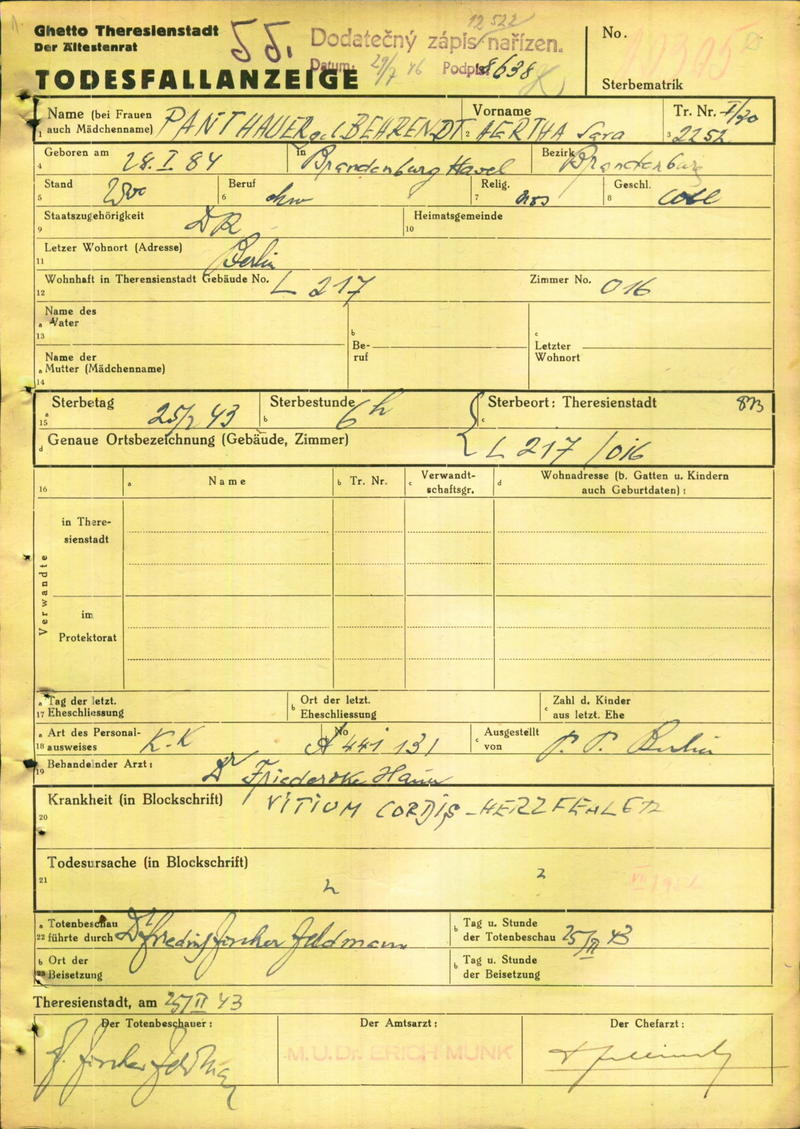 12 522
Ghetto Theresienstadt
Der Ältestenrat
55.
Dodatečný zápis nařízen.
Datum: 29/7 46 Podpis: 8638
TODESFALLANZEIGE
No.
Sterbematrik
Name (bei Frauen auch Mädchenname) PANTHAUER geb BEHRENDT
Vorname Sara
Tr. Nr. I/90
1 2 3 2252
Geboren am 28. I. 84 in Brandenburg Havel Bezirk Brandenburg
4
Stand Beruf Relig. mos Geschl.
5 6 7 8
Staatszugehörigkeit DR Heimatsgemeinde
9 10
Letzer Wohnort (Adresse) Berlin
11
Wohnhaft in Therensienstadt Gebäude No. L 217 Zimmer No. 016
12
Name des
a Vater
13
b Beruf
c Letzter Wohnort
Name der
a Mutter (Mädchenname)
14
Sterbetag 25/2 43 Sterbestunde 6 h Sterbeort: Theresienstadt
15 a b c
d Genaue Ortsbezeichnung (Gebäude, Zimmer) L 217/016
16 a Name b Tr. Nr. c Verwandtschaftsgr. d Wohnadresse (b. Gatten u. Kindern auch Geburtdaten):
Verwandte
in Theresienstadt
im Protektorat
a Tag der letzt.
17 Eheschliessung
b Ort der letzt. Eheschliessung
c Zahl d. Kinder aus letzt. Ehe
a Art des Personalausweises K.K
18
b No A 441 131
c Ausgestellt von P. P. Berlin
19 Behandelnder Arzt: Dr
Krankheit (in Blockschrift) VITIUM CORDIS - HERZFEHLER
20
Todesursache (in Blockschrift)
21
a Totenbeschau
22 führte durch Dr Feldmann
b Tag u. Stunde der Totenbeschau 25/II 43
b Ort der Beisetzung
b Tag u. Stunde der Beisetzung
Theresienstadt, am 25/II 43
Der Totenbeschauer:
Der Amtsarzt:
Der Chefarzt:
M.U.Dr. ERICH MUNK